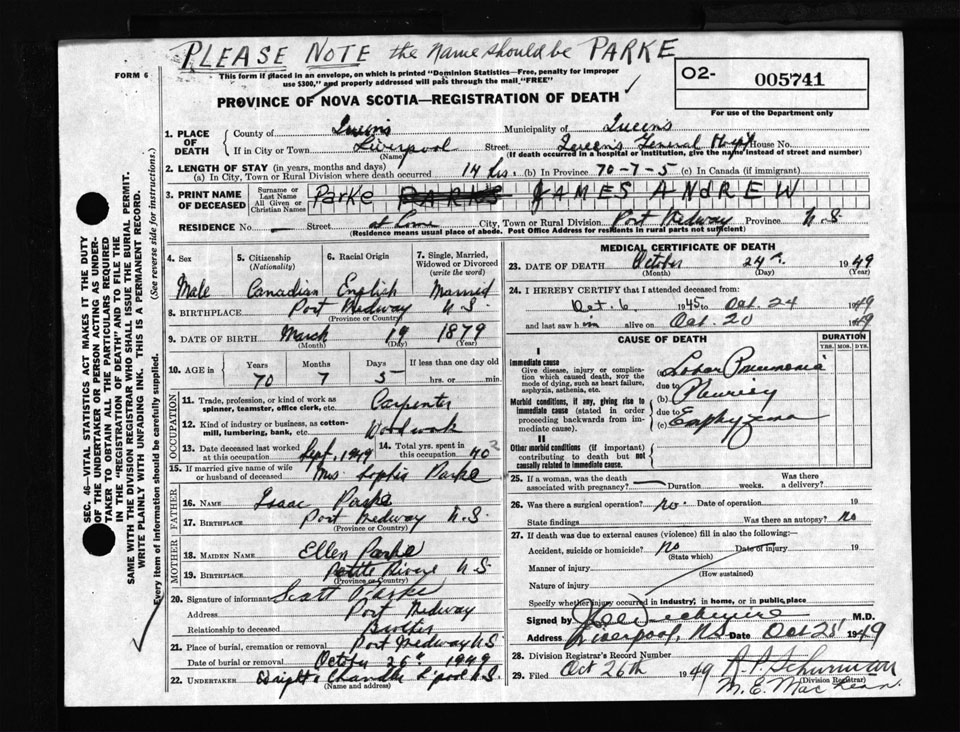 PLEASE NOTE the Name should be PARKE
FORM 6
This form if placed in an envelope, on which is printed "Dominion Statistics—Free, penalty for improper
use $300," and properly addressed will pass through the mail "FREE"
O2- 005741
PROVINCE OF NOVA SCOTIA—REGISTRATION OF DEATH
For use of the Department only
SEC. 46—VITAL STATISTICS ACT MAKES IT THE DUTY
OF THE UNDERTAKER OR PERSON ACTING AS UNDER-
TAKER TO OBTAIN ALL THE PARTICULARS REQUIRED
IN THE "REGISTRATION OF DEATH" AND TO FILE THE
SAME WITH THE DIVISION REGISTRAR WHO SHALL ISSUE THE BURIAL PERMIT.
WRITE PLAINLY WITH UNFADING INK. THIS IS A PERMANENT RECORD.
Every item of information should be carefully supplied. (See reverse side for instructions.)
1. PLACE OF DEATH
County of Queens Municipality of Queens
If in City or Town Liverpool Street Queens General Hosp House No.
(Name) (If death occurred in a hospital or institution, give the name instead of street and number)
2. LENGTH OF STAY (in years, months and days)
(a) In City, Town or Rural Division where death occurred 14 hrs. (b) In Province 70-7-5 (c) In Canada (if immigrant)
3. PRINT NAME OF DECEASED
Surname or Last Name
All Given or Christian Names
Parke PARKS JAMES ANDREW
RESIDENCE No. — Street at home City, Town or Rural Division Port Medway Province N.S
(Residence means usual place of abode. Post Office Address for residents in rural parts not sufficient)
4. Sex 5. Citizenship (Nationality) 6. Racial Origin 7. Single, Married, Widowed or Divorced (write the word)
Male Canadian English Married
8. BIRTHPLACE Port Medway N S
(Province or Country)
9. DATE OF BIRTH March 19 1879
(Month) (Day) (Year)
10. AGE in Years Months Days If less than one day old
70 7 5 hrs. or min.
OCCUPATION
11. Trade, profession, or kind of work as spinner, teamster, office clerk, etc. Carpenter
12. Kind of industry or business, as cotton-mill, lumbering, bank, etc. Wood work
13. Date deceased last worked at this occupation Sept. 1949 14. Total yrs. spent in this occupation 40
15. If married give name of wife or husband of deceased Mrs Sophia Parke
FATHER
16. NAME Isaac Parke
17. BIRTHPLACE Port Medway N.S.
(Province or Country)
MOTHER
18. MAIDEN NAME Ellen Parke
19. BIRTHPLACE Petite Riviere N.S
(Province or Country)
20. Signature of informant Scott Parke
Address Port Medway
Relationship to deceased Brother
21. Place of burial, cremation or removal Port Medway N.S
Date of burial or removal October 26th 1949
22. UNDERTAKER Chandler L'pool N.S.
(Name and address)
MEDICAL CERTIFICATE OF DEATH
23. DATE OF DEATH October 24th 1949
(Month) (Day) (Year)
24. I HEREBY CERTIFY that I attended deceased from:
Oct. 6 1945 to Oct. 24 1949
and last saw him alive on Oct. 20 1949
CAUSE OF DEATH DURATION
YRS. MOS. DYS.
I
Immediate cause
Give disease, injury or complication which caused death, nor the mode of dying, such as heart failure, asphyxia, asthenia, etc.
Lobar Pneumonia
due to
Morbid conditions, if any, giving rise to immediate cause (stated in order proceeding backwards from immediate cause).
(b) Pleurisy
due to
(c) Emphyzema
II
Other morbid conditions (if important) contributing to death but not causally related to immediate cause.
25. If a woman, was the death associated with pregnancy? — Duration weeks. Was there a delivery?
26. Was there a surgical operation? No. Date of operation 19
State findings Was there an autopsy? No
27. If death was due to external causes (violence) fill in also the following:—
Accident, suicide or homicide? No Date of injury 19
(State which)
Manner of injury
(How sustained)
Nature of injury
Specify whether injury occurred in industry, in home, or in public place
Signed by M.D.
Address Liverpool, NS Date Oct 25 1949
28. Division Registrar's Record Number
29. Filed Oct 26th 1949 A. P. Schurman
(Division Registrar)
M. E. MacLean